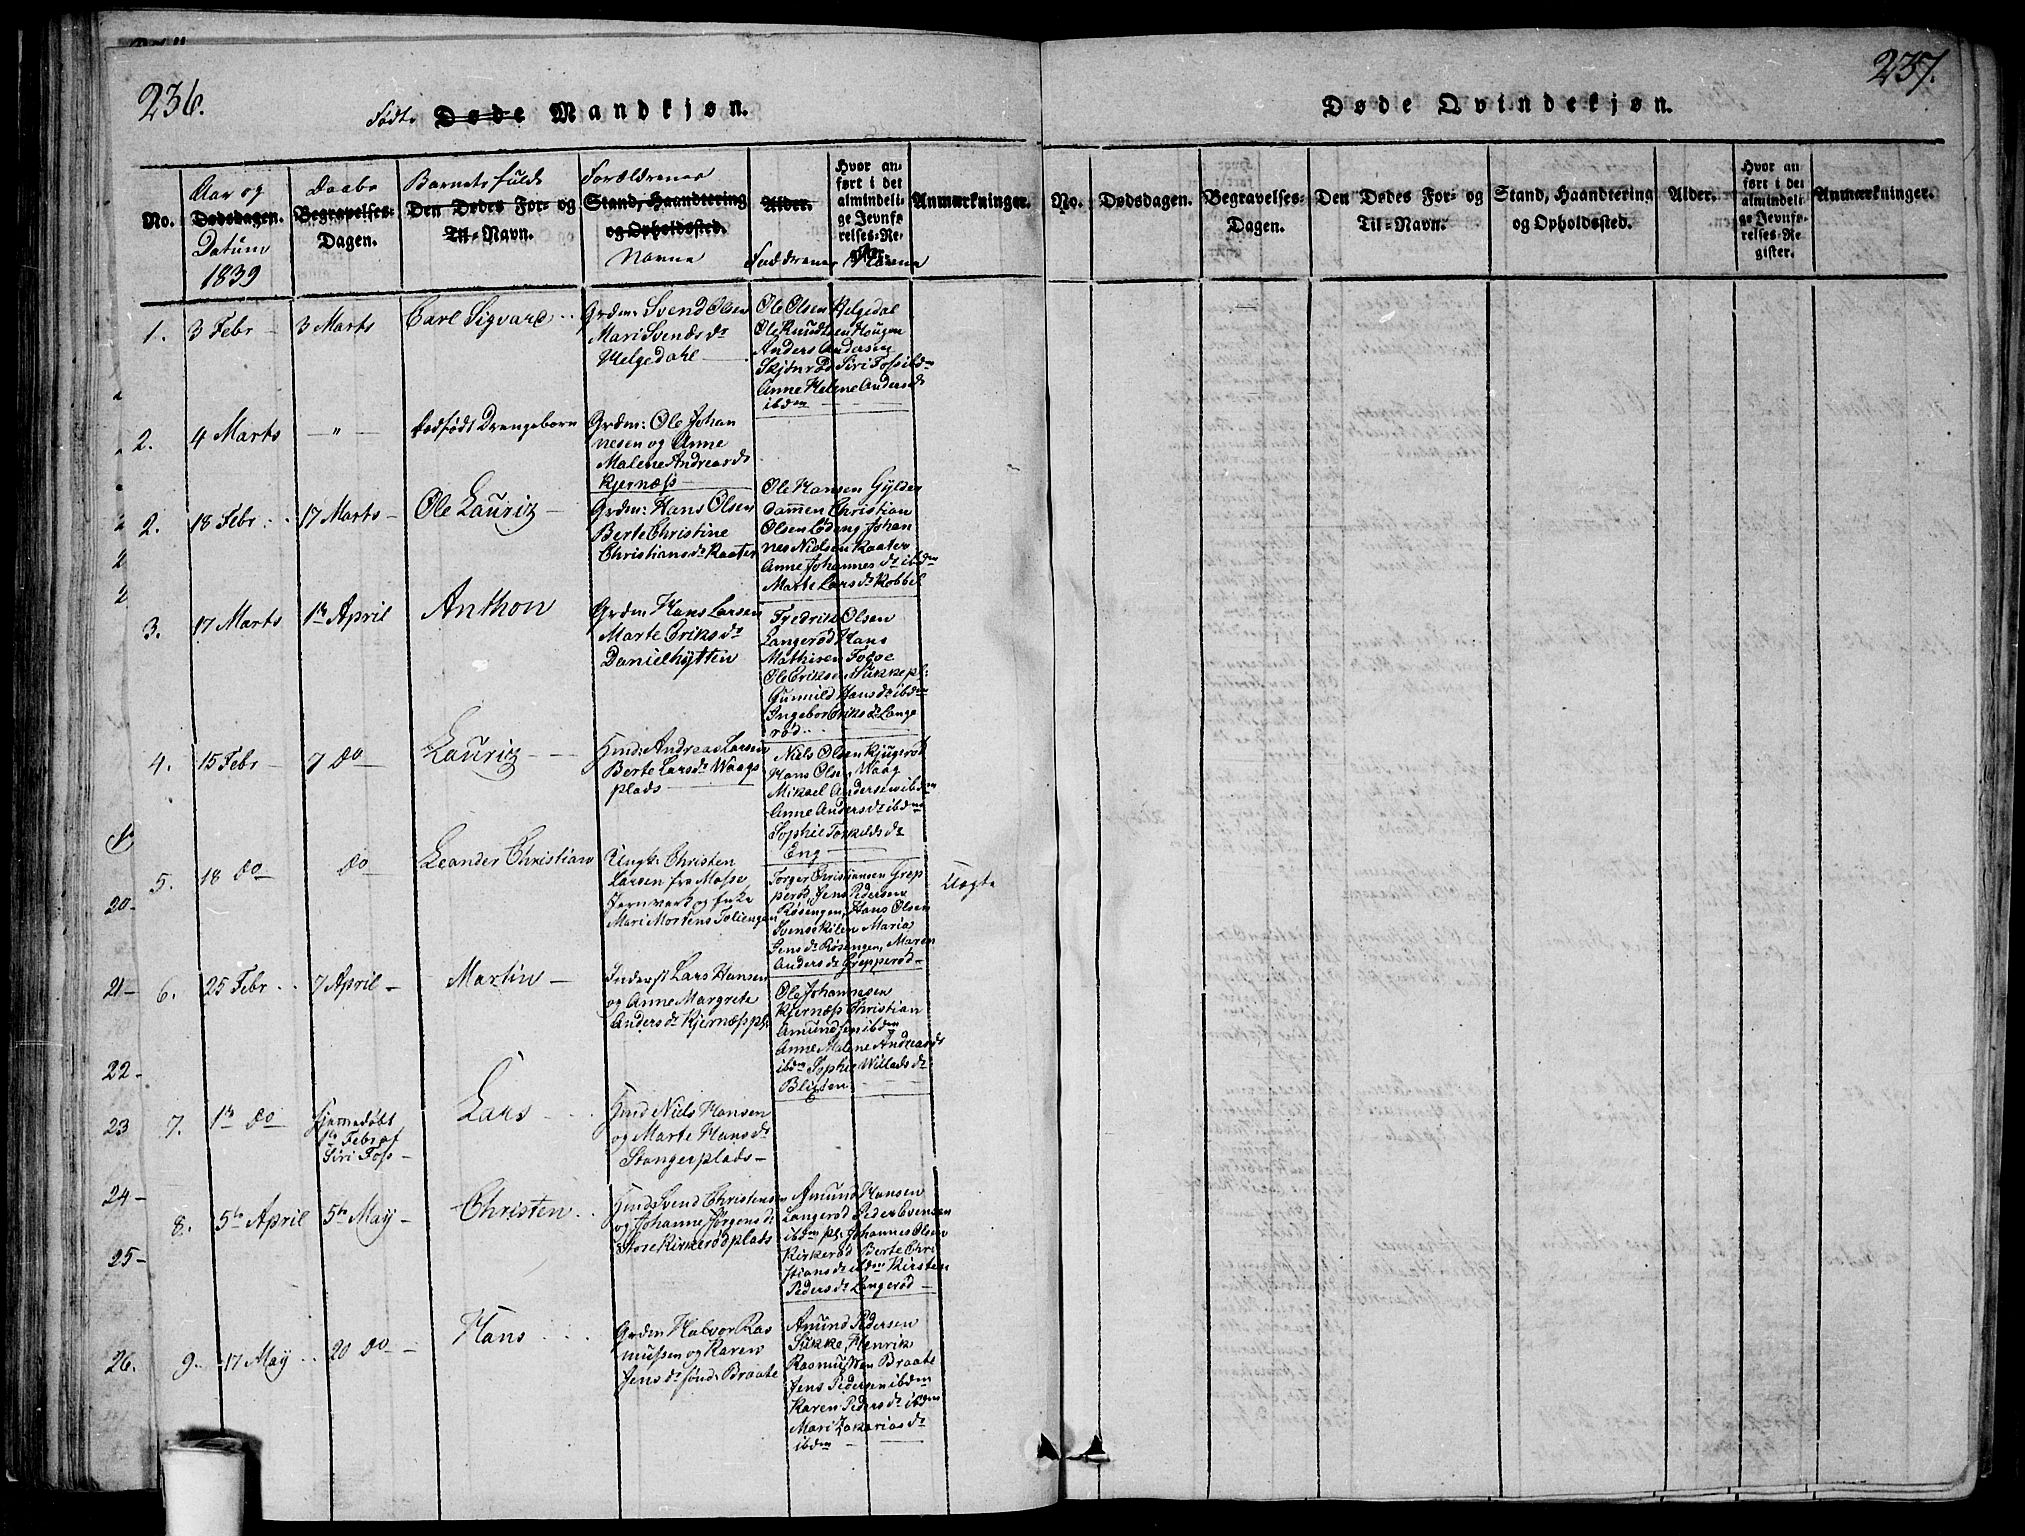 236.
Født. Døde Mandkjøn.
No.
Aar og
Dødsdagen.
Datum
1839
Daabs
Begravelses-
Dagen.
Barnets fulde
Den Dødes For- og
Til-Navn.
Forældrenes
Stand, Haandtering
og Opholdssted.
Navne
Alder.
Faddrenes Navne
Hvor an-
ført i det
almindeli-
ge Jevnfø-
relses-Re-
gister.
Anmærkninger.
1.
3 Febr
3 Marts
Carl Sigvard
Grdm: Svend Olsen
Mari Svendsdr
Helgedahl
Ole Olsen Helgedal
Ole Knudtsen Hougen
Anders Andersen
Skjønrød Siri Foss ibdm
Anne Helene Andersdr
ibdm
2.
4 Marts
— " —
dødfødt Drengebarn
Grdm: Ole Johan
nesen og Anne
Malene Andreasdr
Kjernæss
2.
18 Febr
17 Marts
Ole Lauritz
Grdm: Hans Olsen
Berte Christine
Christiansdr Kaater
Ole Hansen Gylder
dammen Christian
Olsen Lødeng Johan
nes Nielsen Kaater
Anne Johannesdr ibdm
Marte Larsdr Kobbel
3.
17 Marts
1ste April
Anthon
Grdm Hans Larsen
Marte Eriksdr
Danielhytten
Fredrik Olsen
Langerød Hans
Mathisen
Ole Eriksen Sukkepl:
Gunnild Hansdr ibdm
Ingebor Eriksdr Lange
rød
4.
15 Febr
7 do
Lauritz
Hmd: Andreas Larsen
Berte Larsdr Waags
plads
Niels Olsen Kjugerød
Hans Olsen Waag
Mikael Andersen ibdm
Anne Andersdr ibdm
Sophie Torkildsdr
Eng
5.
18 do
do
Leander Christian
Ungk: Christen
Larsen fra Mosse
Jernverk og Enke
Mari Mortens Toliengen
Torger Christiansen Grep
perød Jens Pedersen
Røsengen, Hans Olsen
Svenskilen Maria
Jensdr Røsengen, Maren
Andersdr Grepperød
Uægte
6.
25 Febr
7 April
Martin
Inderst Lars Hansen
og Anne Margrete
Andersdr Kjernæsspl:
Ole Johannesen
Kjernæss Christian
Amundsen ibdm
Anne Malene Andreasdr
ibdm Sophie Willadsdr
Blixten
7.
1ste do
Hjemmedøbt
1ste Febr af
Siri Foss
Lars
Hmd Niels Hansen
og Marte Hansdr
Stangerplads
8.
5te April
5te May
Christen
Hmd Svend Christensen
og Johanne Jørgensdr
Store Kirkerødplads
Amund Hansen
Langerød Peder Evensen
ibdm pl: Johannes Olsen
Kirkerød Berte Chri
stiansdr ibdm Kirsten
Pedersdr Langerød
9.
17 May
20 do
Hans
Grdm Halvor Ras
mussen og Karen
Jensdr søndr Braate
Amund Pedersen
Sukke, Henrik
Rasmussen Braate
Jens Pedersen ibdm
Karen Pedersdr ibdm
Mari Zakariasdr
ibdm
20-
21-
22-
23
24-
25-
26.
237.
Døde Qvindekjøn.
No.
Dødsdagen.
Begravelses-
Dagen.
Den Dødes For- og
Til-Navn.
Stand, Haandtering
og Opholdssted.
Alder.
Hvor an-
ført i det
almindeli-
ge Jevnfø-
relses-Re-
gister.
Anmærkninger.